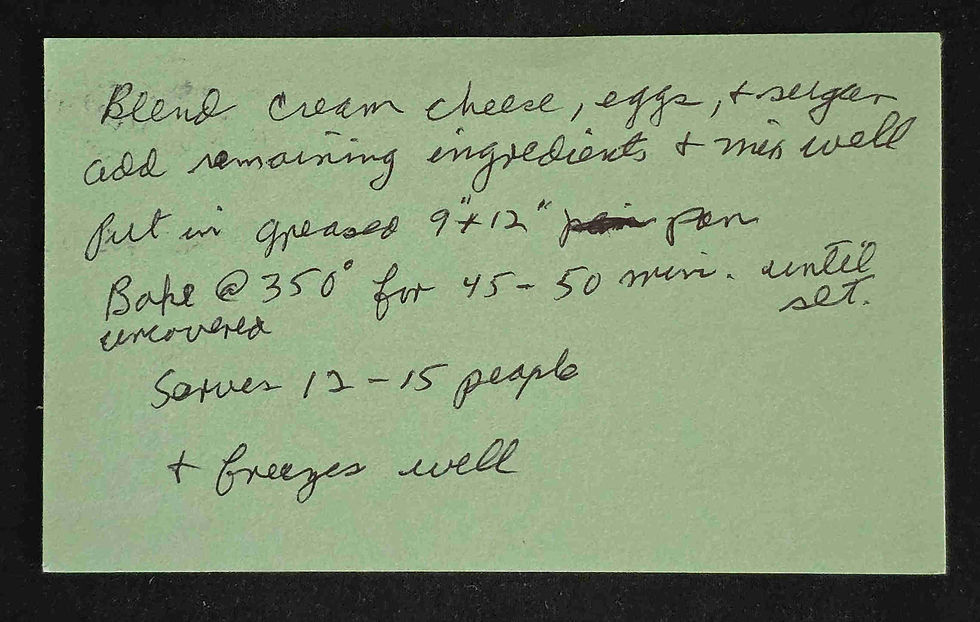 Blend cream cheese, eggs, + sugar
add remaining ingredients + mix well
Put in greased 9"x12" pan
Bake @ 350° for 45-50 min. until
set.
uncovered
Serves 12-15 people
+ freezes well